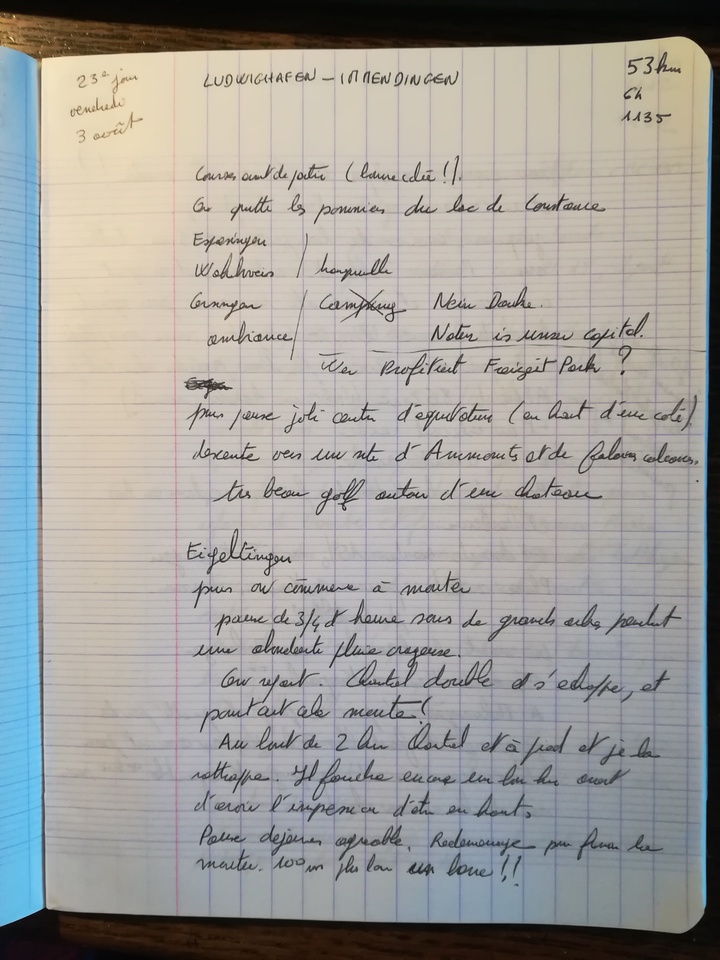 23e jour
vendredi
3 août
LUDWIGHAFEN - IMMENDINGEN
53 km
6h
1135
Courses avant de partir (bonne idée !).
On quitte les pommiers du lac de Constance
Espasingen
Wahlwies / tranquille
Camping Nein Danke.
ambiance / Natur is unser capital.
Wer Profitiert Freizeit Park ?
puis pause joli centre d'équitation (en haut d'une cote)
descente vers un site d'Ammonits et de falaises calcaires.
très beau golf autour d'un chateau
Eigeltingen
puis on commence à monter
pause de 3/4 d'heure sous de grands arbres pendant
une abondante pluie orageuse.
On repart. Chantal double et s'echappe, et
pourtant cela monte !
Au bout de 2 km Chantal est à pied et je la
rattrappe. Il faudra encore un bon km avant
d'avoir l'impression d'être en haut.
Pause dejeuner agréable. Redemarrage pour finir la
montée. 100 m plus loin un banc !!